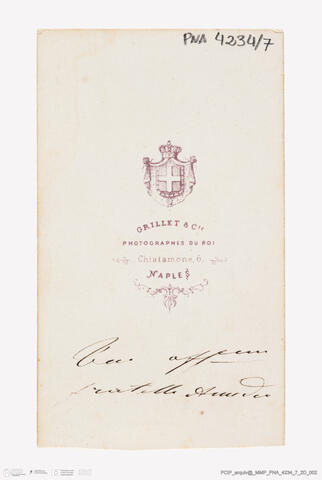 PNA 4234/7
GRILLET & Cie
PHOTOGRAPHES DU ROI
Chiatamone, 6,
NAPLES
Tuo aff.mo
fratello Amedeo
PCIP_arquiv@_MMP_PNA_4234_7_2D_002